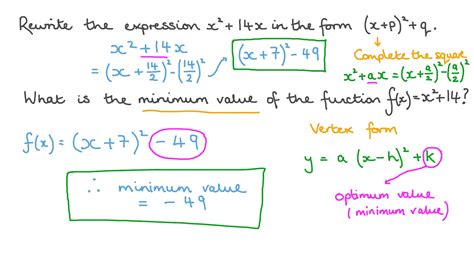 Rewrite the expression x² + 14x in the form (x+p)² + q.
x² + 14x
= (x + 14/2)² - (14/2)²
(x + 7)² - 49
Complete the square
x² + ax = (x + a/2)² - (a/2)²
What is the minimum value of the function f(x) = x² + 14?
f(x) = (x + 7)² - 49
∴ minimum value
= - 49
Vertex form
y = a (x - h)² + k
optimum value
(minimum value)